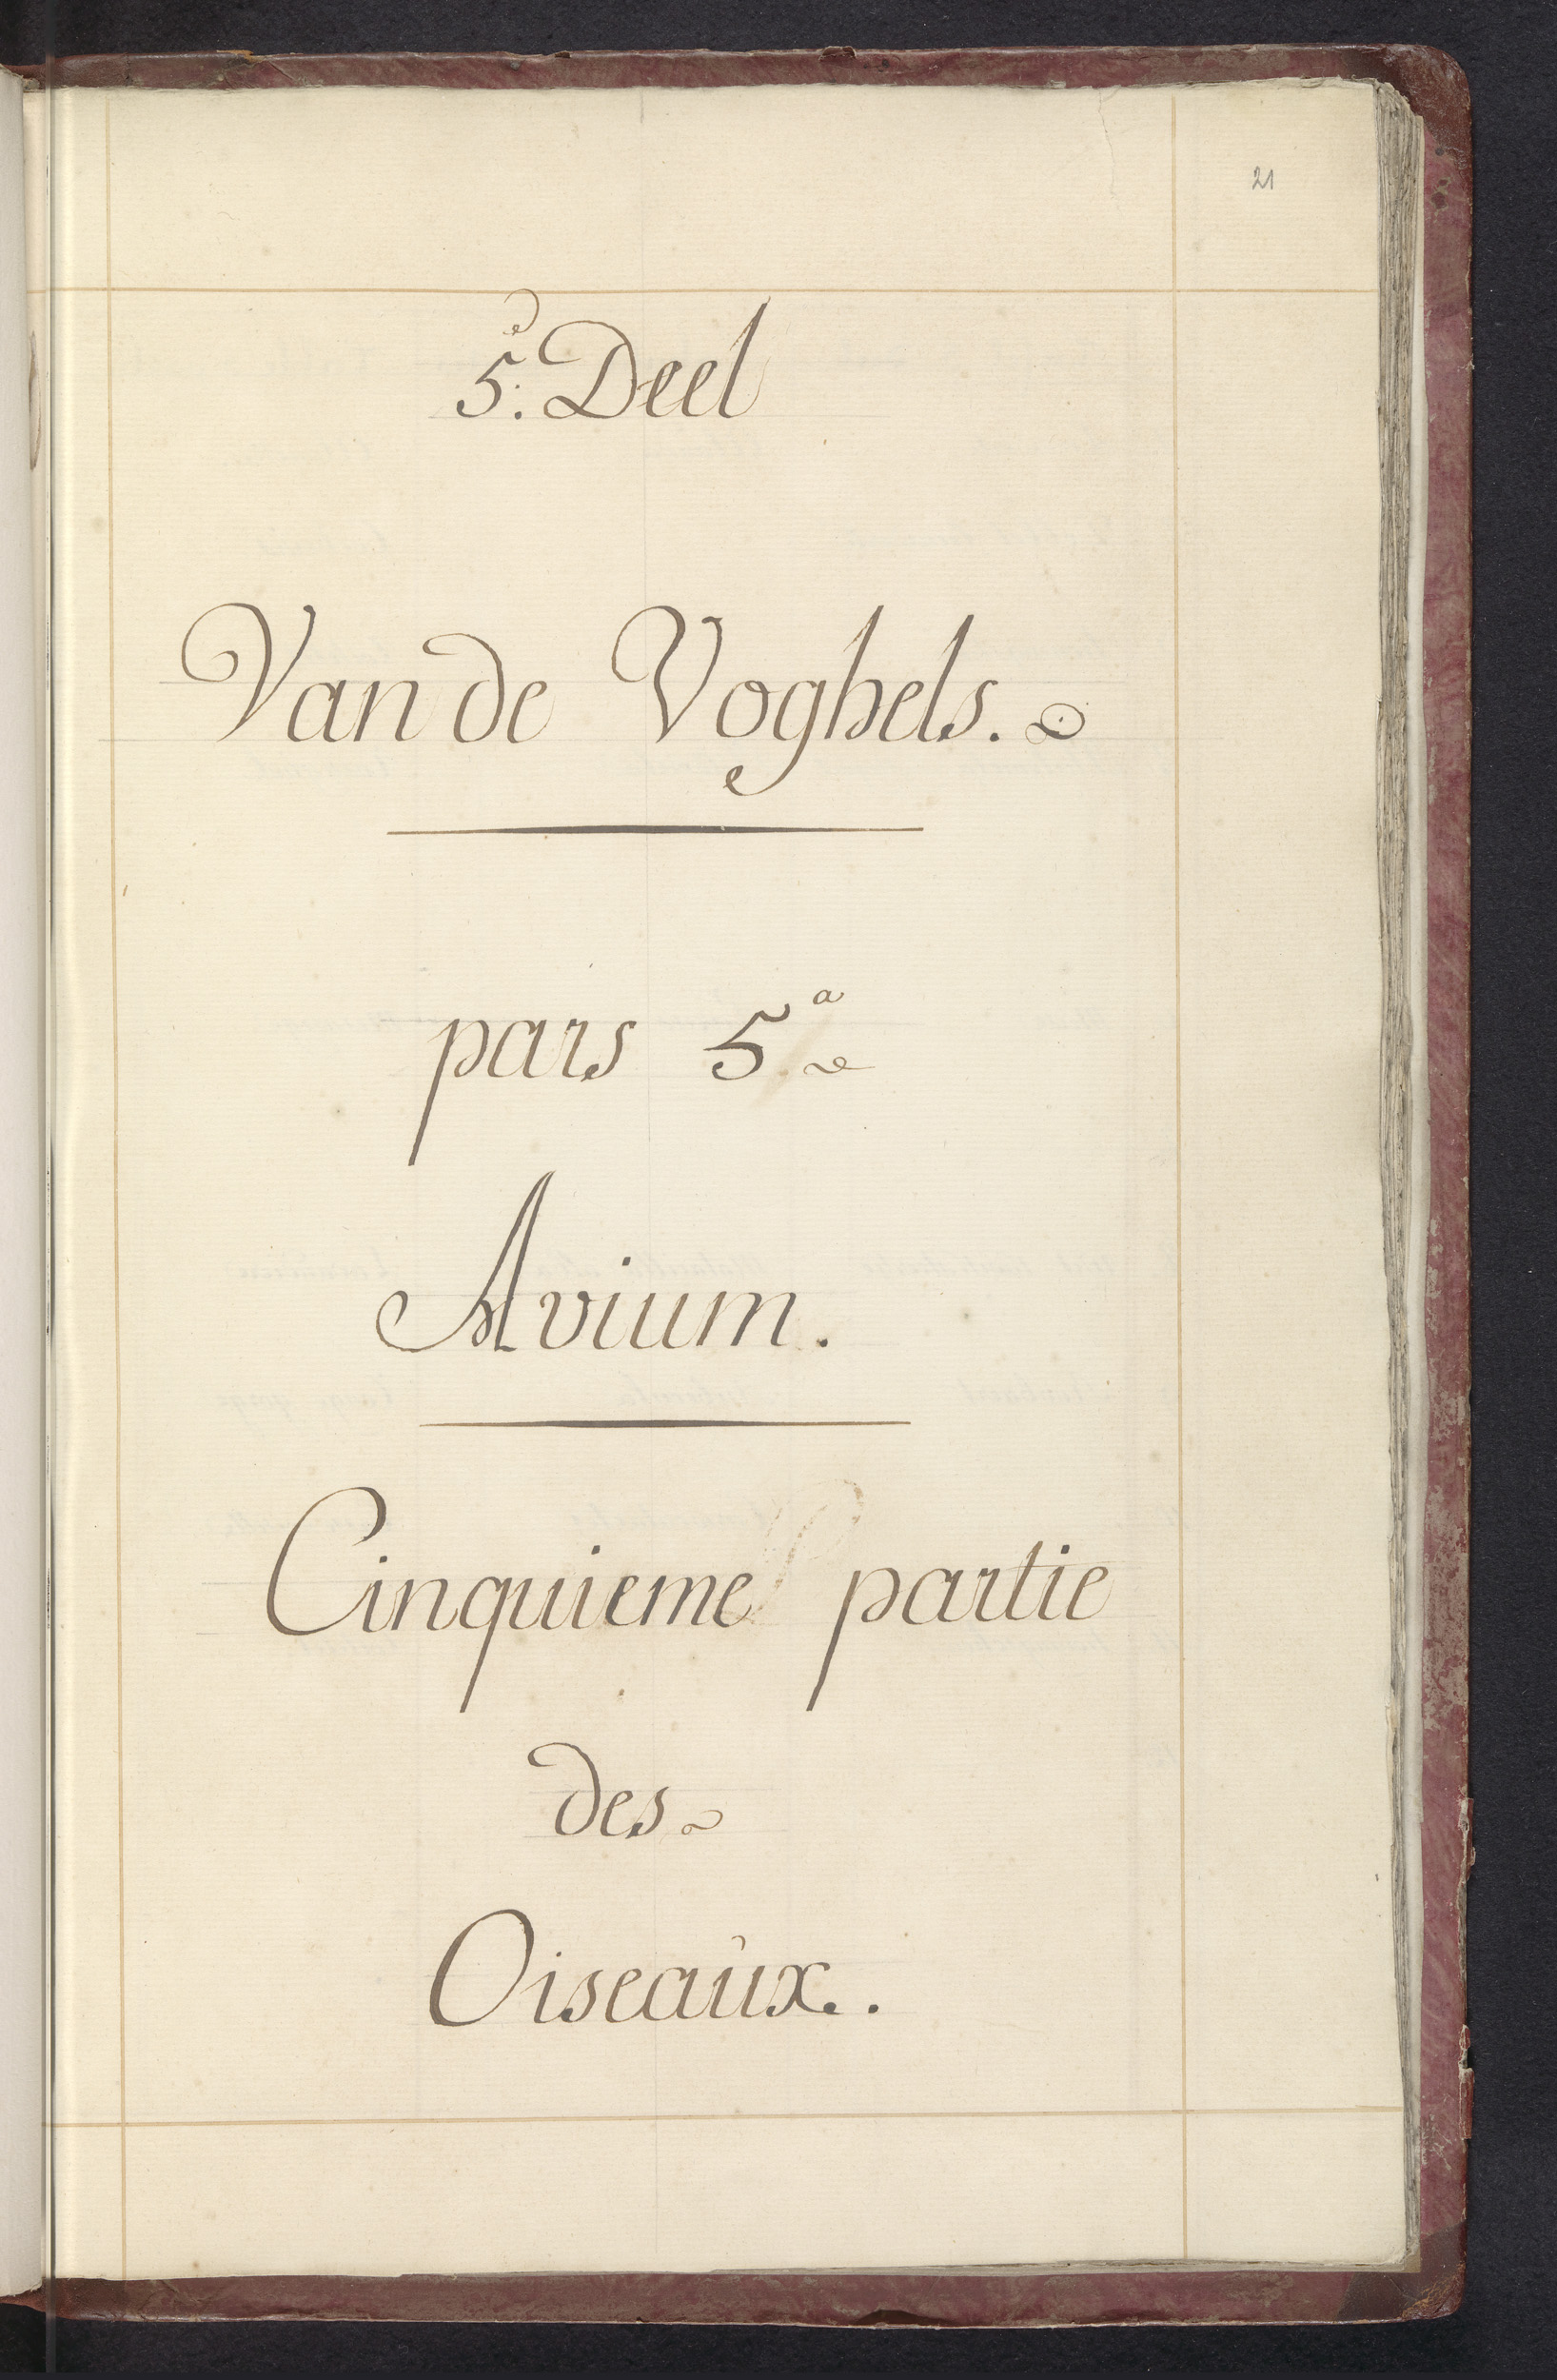 21
5.e Deel
Van de Voghels.
pars 5.a
Avium.
Cinquieme partie
des
Oiseaux.